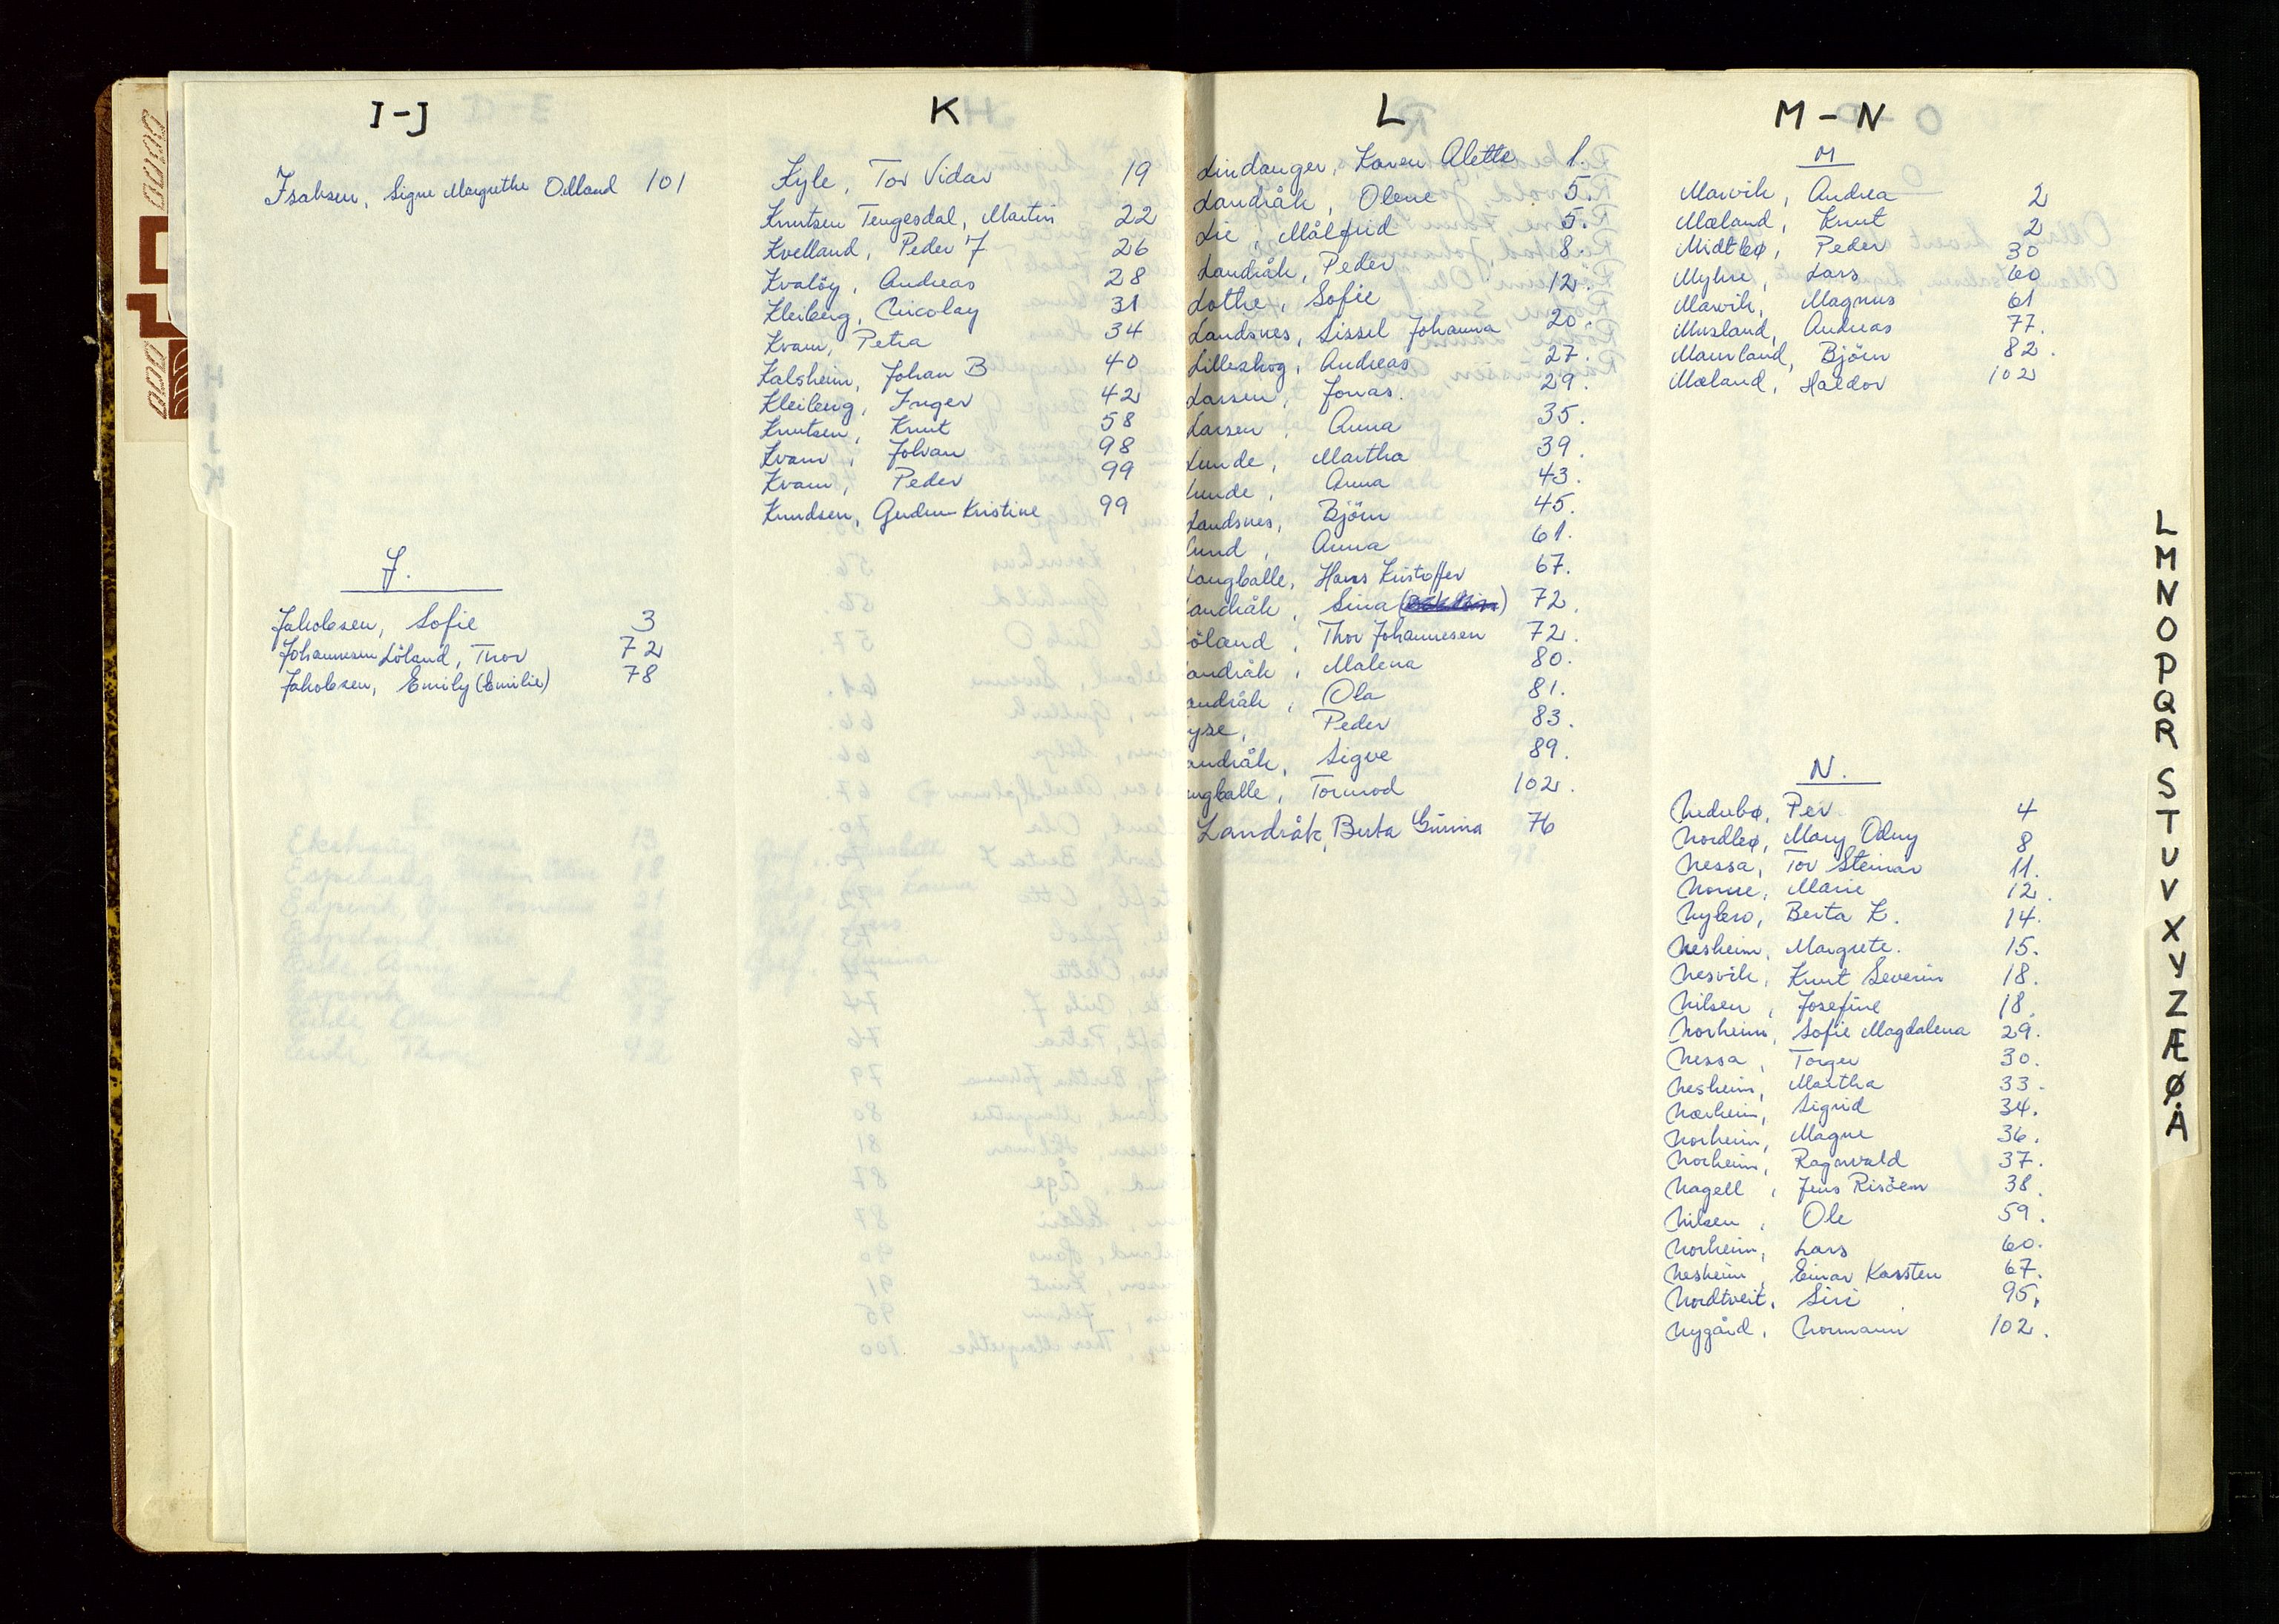 I-J
Isaksen, Signe Margrethe Ødland 101
J.
Jakobsen, Sofie 3
Johannesen Löland, Thor 72
Jakobsen, Emily (Emilie) 78
K
Kyle, Tor Vidar 19
Knutsen Tengesdal, Martin 22
Kvelland, Peder J 26
Kvalöy, Andreas 28
Kleiberg, Nicolay 31
Kvam, Petra 34
Kalsheim, Johan B 40
Kleiberg, Inger 42
Knutsen, Knut 58
Kvam, Johan 98
Kvam, Peder 99
Knudsen, Gudrun Kristine 99
L
Lindanger, Karen Alette 1.
Landråk, Olene 5.
Lie, Målfrid 5.
Landråk, Peder 8.
Lothe, Sofie 12.
Landsnes, Sissel Johanna 20.
Lilleskog, Andreas 27.
Larsen, Jonas. 29.
Larsen, Anna 35.
Lunde, Martha 39.
Lunde, Anna 43.
Landsnes, Björn 45.
Lund, Anna 61.
Langballe, Hans Kristoffer 67.
andråk, Sina 72.
öland, Thor Johannesen 72.
andråk, Malena 80.
andråk, Ola 81.
yse, Peder 83.
andråk, Sigve 89.
ngballe, Tormod 102.
Landråk, Berta Gurina 76
M-N
M
Marvik, Andrea 2
Mæland, Knut 2
Midtbø, Peder 30
Myhre, Lars 60
Marvik, Magnus 61
Musland, Andreas 77.
Maurland, Björn 82.
Mæland, Haldor 102
N.
Nedrebø, Per 4
Nordbø, Mary Odny 8
Nessa, Tor Steinar 11.
Norne, Marie 12.
Nybro, Berta K. 14.
Nesheim, Margrete. 15.
Nesvik, Knut Severin 18.
Nilsen, Josefine 18.
Norheim, Sofie Magdalena 29.
Nessa, Torger 30.
Nesheim, Martha 33.
Nærheim, Sigrid 34.
Norheim, Magne 36.
Norheim, Ragnvald 37.
Nagell, Jens Risöen 38.
Nilsen, Ole 59.
Norheim, Lars 60.
Nesheim, Einar Karsten 67.
Nordtveit, Siri 95.
Nygård, Normann 102.
L
M
N
O
P
Q
R
S
T
U
V
X
Y
Z
Æ
Ø
Å